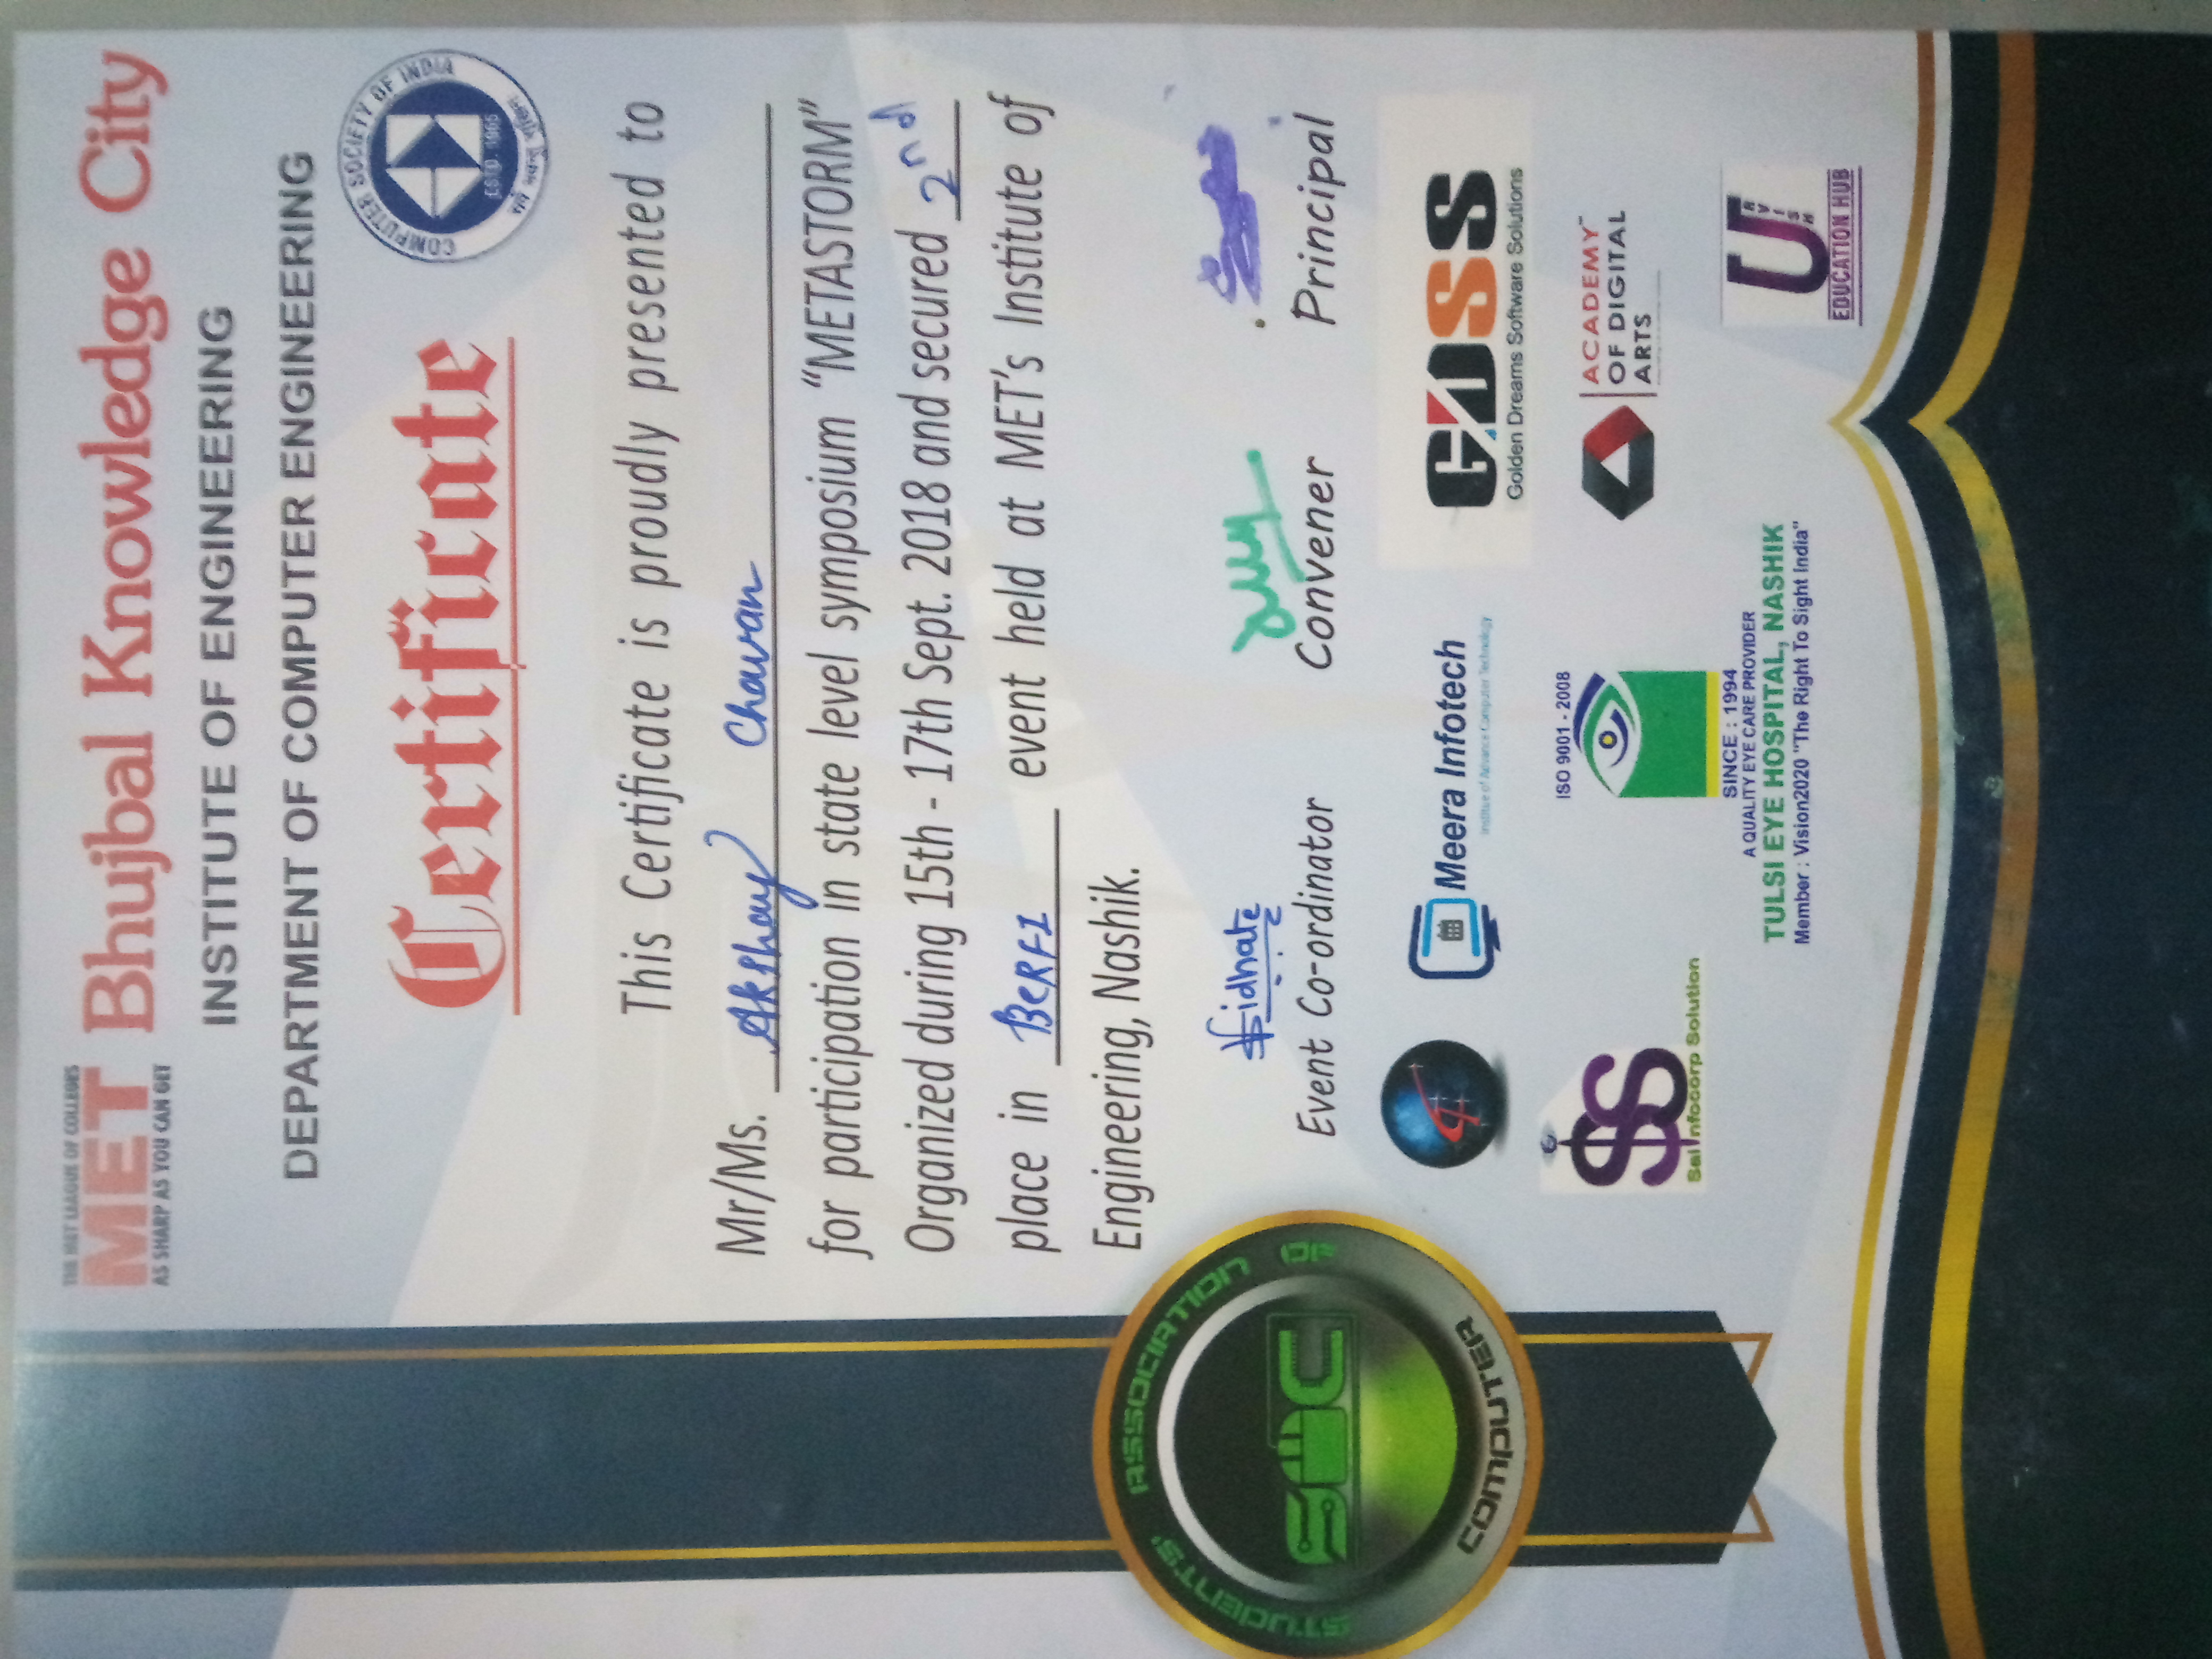 THE MET LEAGUE OF COLLEGES
MET Bhujbal Knowledge City
AS SHARP AS YOU CAN GET
INSTITUTE OF ENGINEERING
DEPARTMENT OF COMPUTER ENGINEERING
COMPUTER SOCIETY OF INDIA
ESTD. 1965
Certificate
This Certificate is proudly presented to
Mr/Ms. Akshay Chavan
for participation in state level symposium “METASTORM”
Organized during 15th - 17th Sept. 2018 and secured 2nd
place in event held at MET's Institute of
Engineering, Nashik.
Event Co-ordinator Convener Principal
STUDENTS' ASSOCIATION OF
SAC
COMPUTER
Meera Infotech
Institue of Advance Computer Technology
GDSS
Golden Dreams Software Solutions
SS
Sai Infocorp Solution
ISO 9001 - 2008
SINCE : 1994
A QUALITY EYE CARE PROVIDER
TULSI EYE HOSPITAL, NASHIK
Member : Vision2020 "The Right To Sight India"
ACADEMY
OF DIGITAL
ARTS
URVISH
EDUCATION HUB